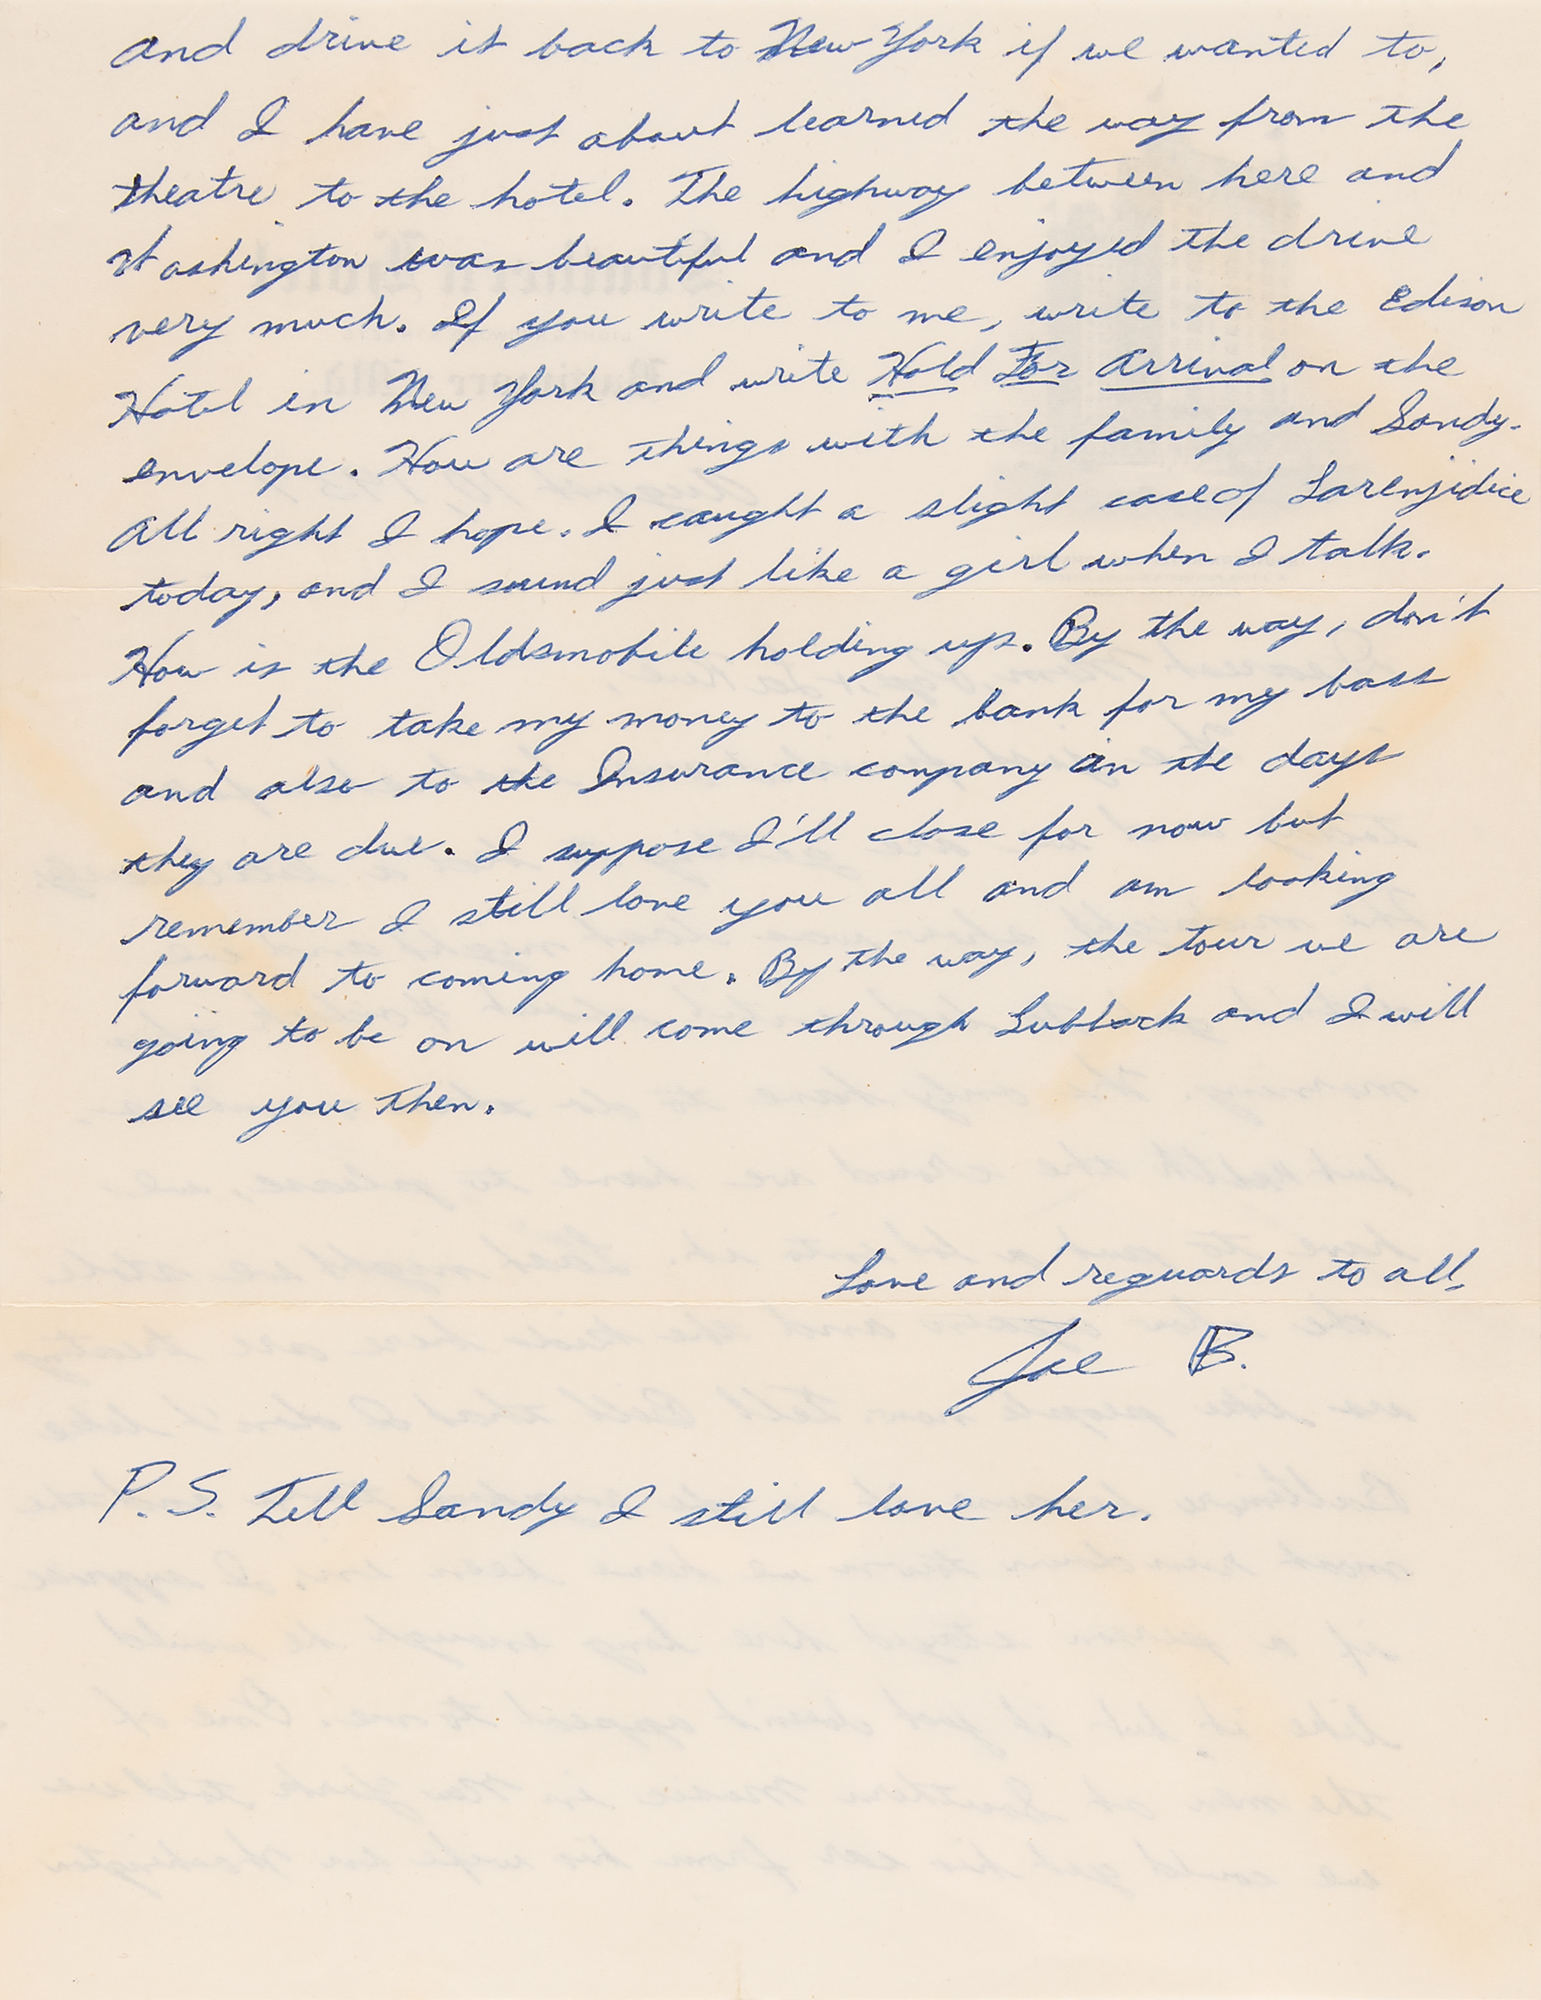 and drive it back to New York if we wanted to,
and I have just about learned the way from the
theatre to the hotel. The highway between here and
Washington was beautiful and I enjoyed the drive
very much. If you write to me, write to the Edison
Hotel in New York and write Hold For Arrival on the
envelope. How are things with the family and Sandy.
All right I hope. I caught a slight case of Larenjidice
today, and I sound just like a girl when I talk.
How is the Oldsmobile holding up. By the way, don't
forget to take my money to the bank for my bass
and also to the Insurance company on the days
they are due. I suppose I'll close for now but
remember I still love you all and am looking
forward to coming home. By the way, the tour we are
going to be on will come through Lubbock and I will
see you then.
Love and reguards to all,
Joe B.
P.S. Tell Sandy I still love her.